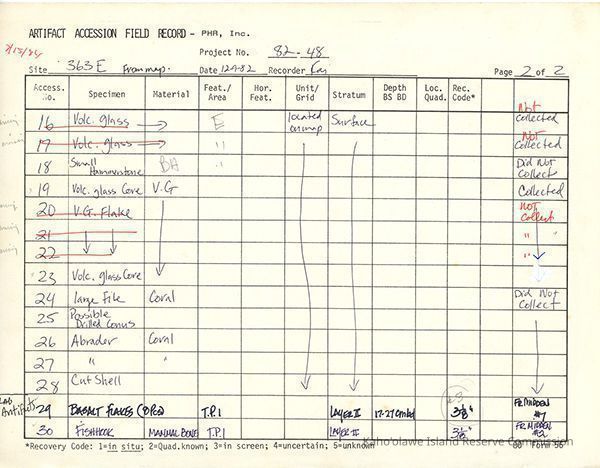 ARTIFACT ACCESSION FIELD RECORD - PHR, Inc.
Project No. 82-48
Site 363E From map. Date 12-9-82 Recorder
Page 2 of 2
Access. No. Specimen Material Feat./Area Hor. Feat. Unit/Grid Stratum Depth BS BD Loc. Quad. Rec. Code*
16 Volc. glass E located on map Surface Not Collected
17 Volc. glass " Not Collected
18 Small Hammerstone BA " Did Not Collect
19 Volc. glass Core V.G Collected
20 V.G. Flake NOT Collect
21 " "
22 "
23 Volc. glass Core
24 large File Coral Did Not Collect
25 Possible Drilled Conus
26 Abrader Coral
27 " "
28 Cut Shell
Lab Artifacts 29 BASALT FLAKES T.P.1 LAYER II 17-27cmbd 3 1/8" FR. MIDDEN
30 FISHHOOK MAMMAL BONE T.P.1 LAYER II FR. MIDDEN
*Recovery Code: 1=in situ; 2=Quad.known; 3=in screen; 4=uncertain; 5=unknown
Kaho'olawe Island Reserve Commission